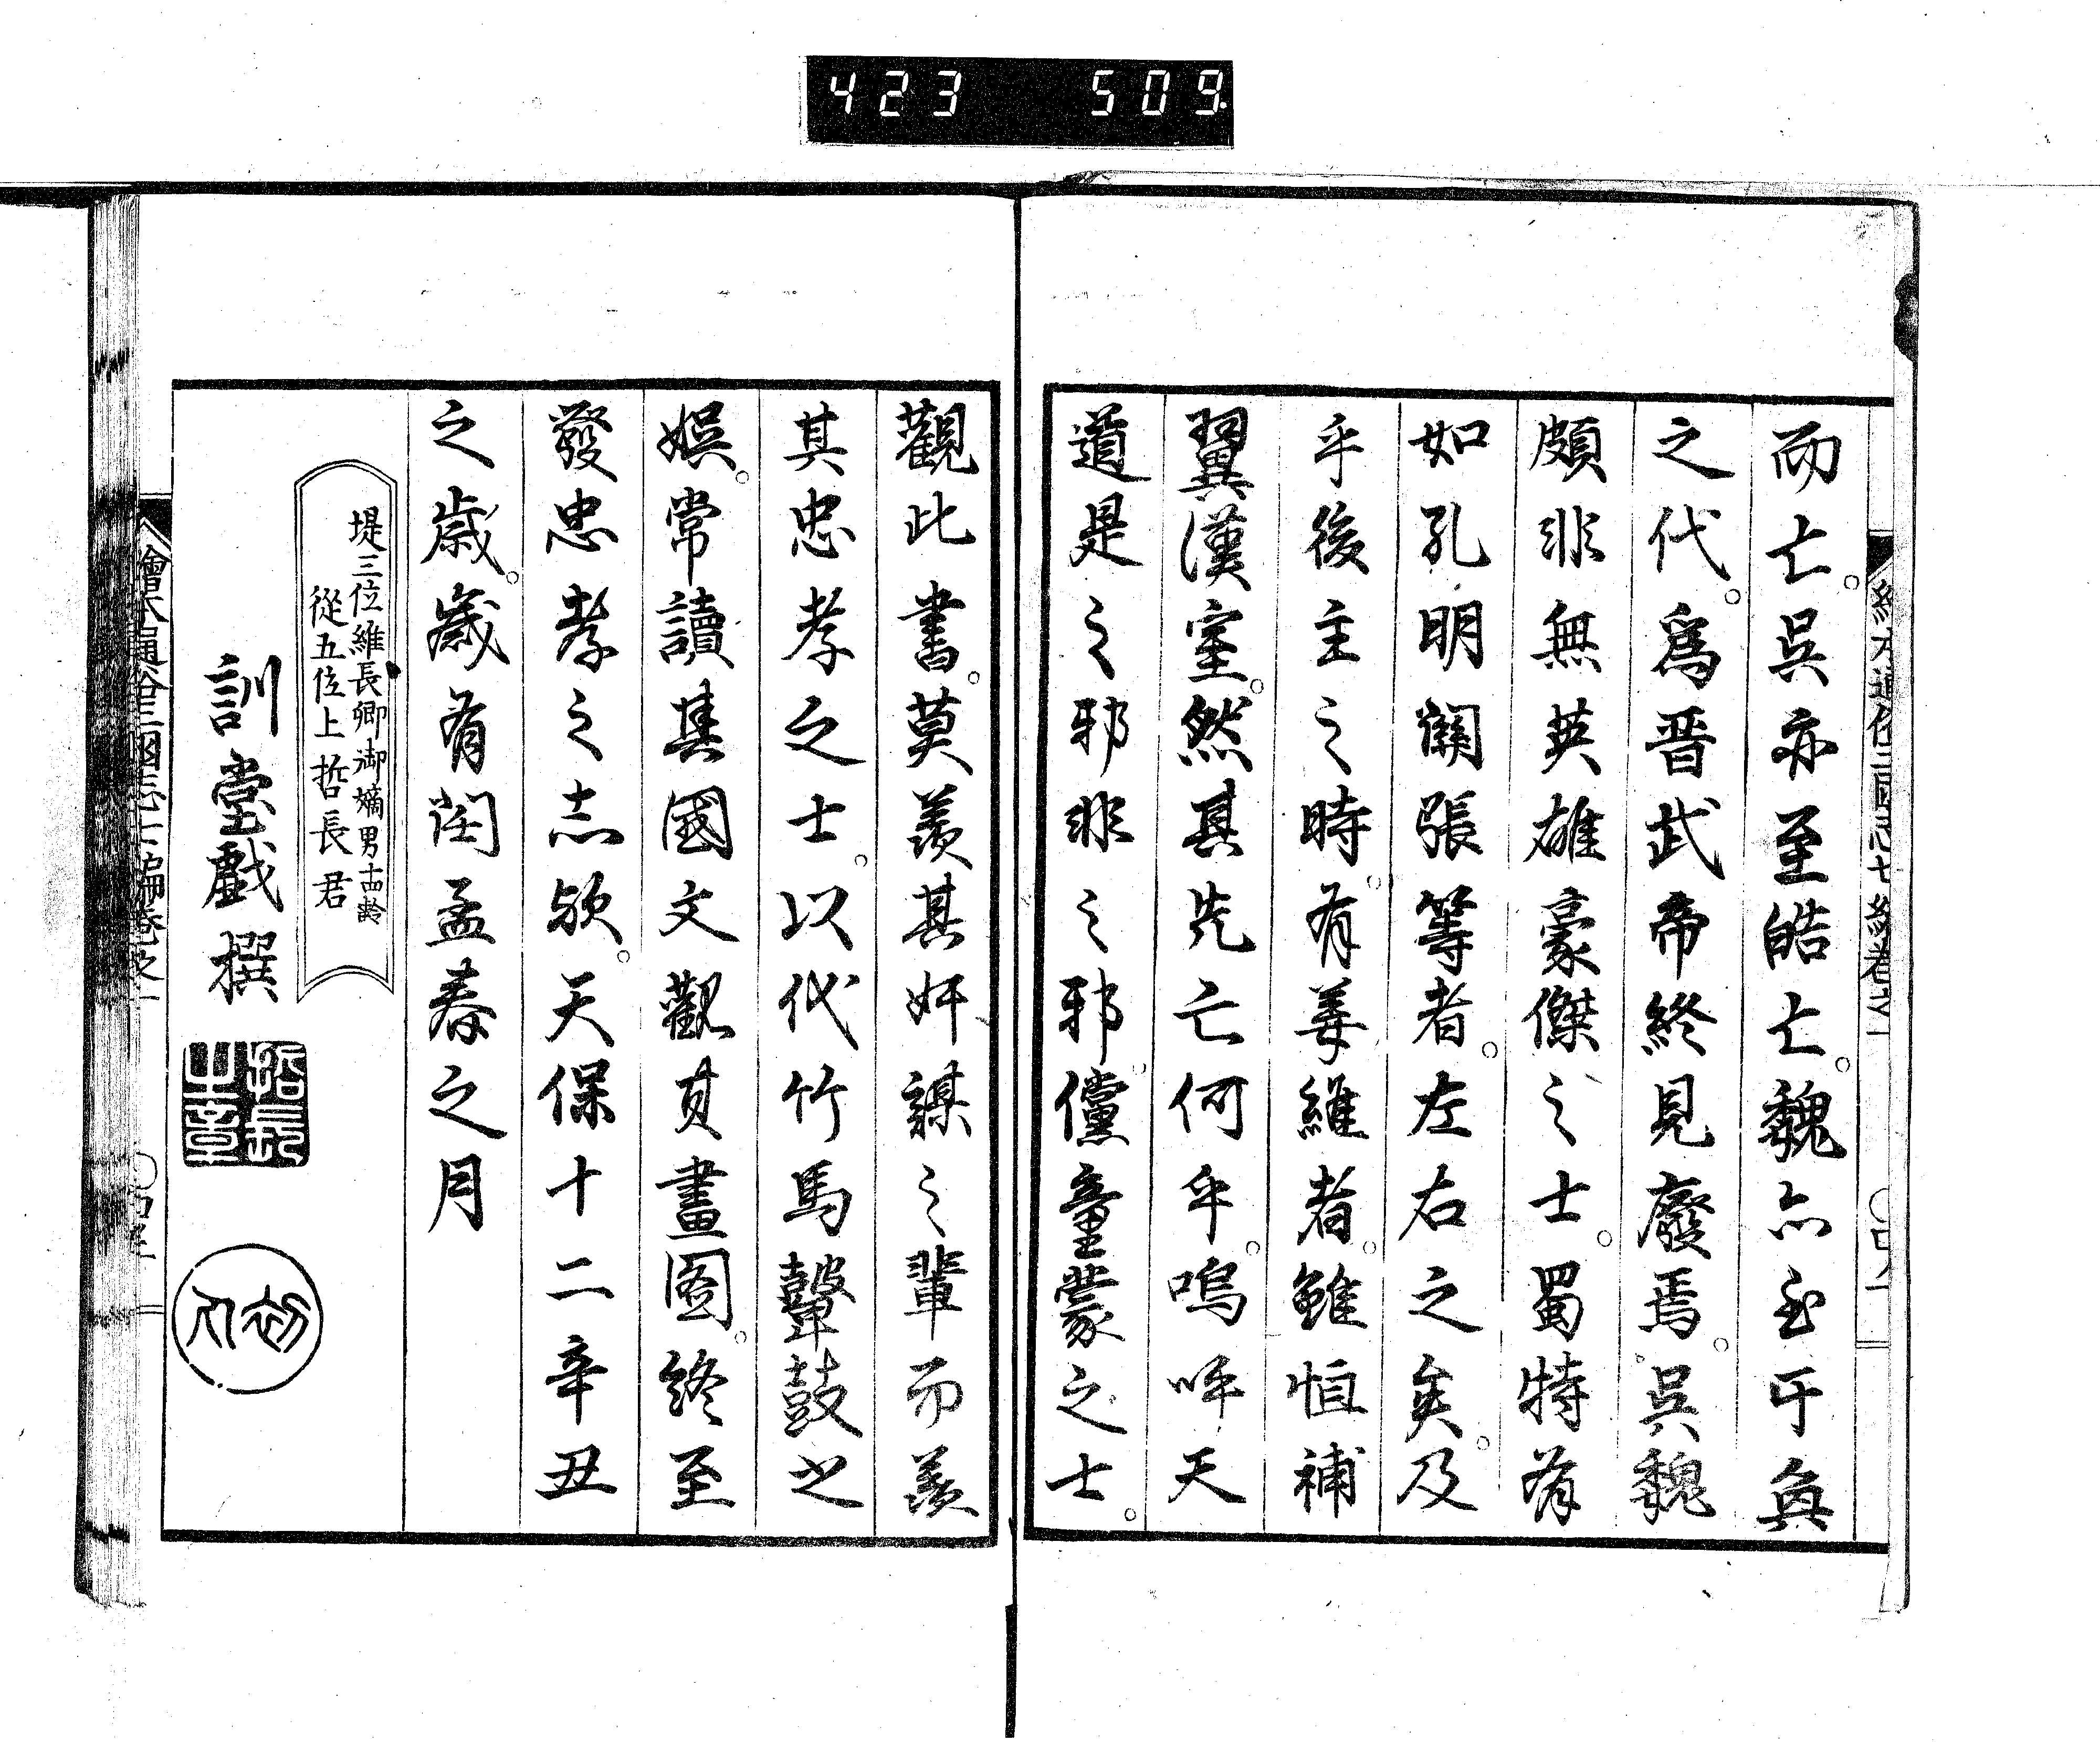 423 509
而亡。呉亦至皓亡。魏亦至于奐
之代。爲晋武帝終見廢焉。呉魏
頗非無英雄豪傑之士。蜀特有
如孔明關張等者。左右之矣。及
乎後主之時。有姜維者。雖恒補
翼漢室。然其先亡何乎。嗚呼天
道是之邪非之邪。儻童蒙之士。
觀此書。莫羨其奸謀之輩而羨
其忠孝之士。以代竹馬鼙鼓之
娯。常讀其國文觀其畫圖。終至
發忠孝之志欤。天保十二辛丑
之歳。歳有閏孟春之月
堤三位維長卿御嫡男十四齡
從五位上哲長君
訓堂戲撰
哲長
繪本通俗三國志七編卷之一